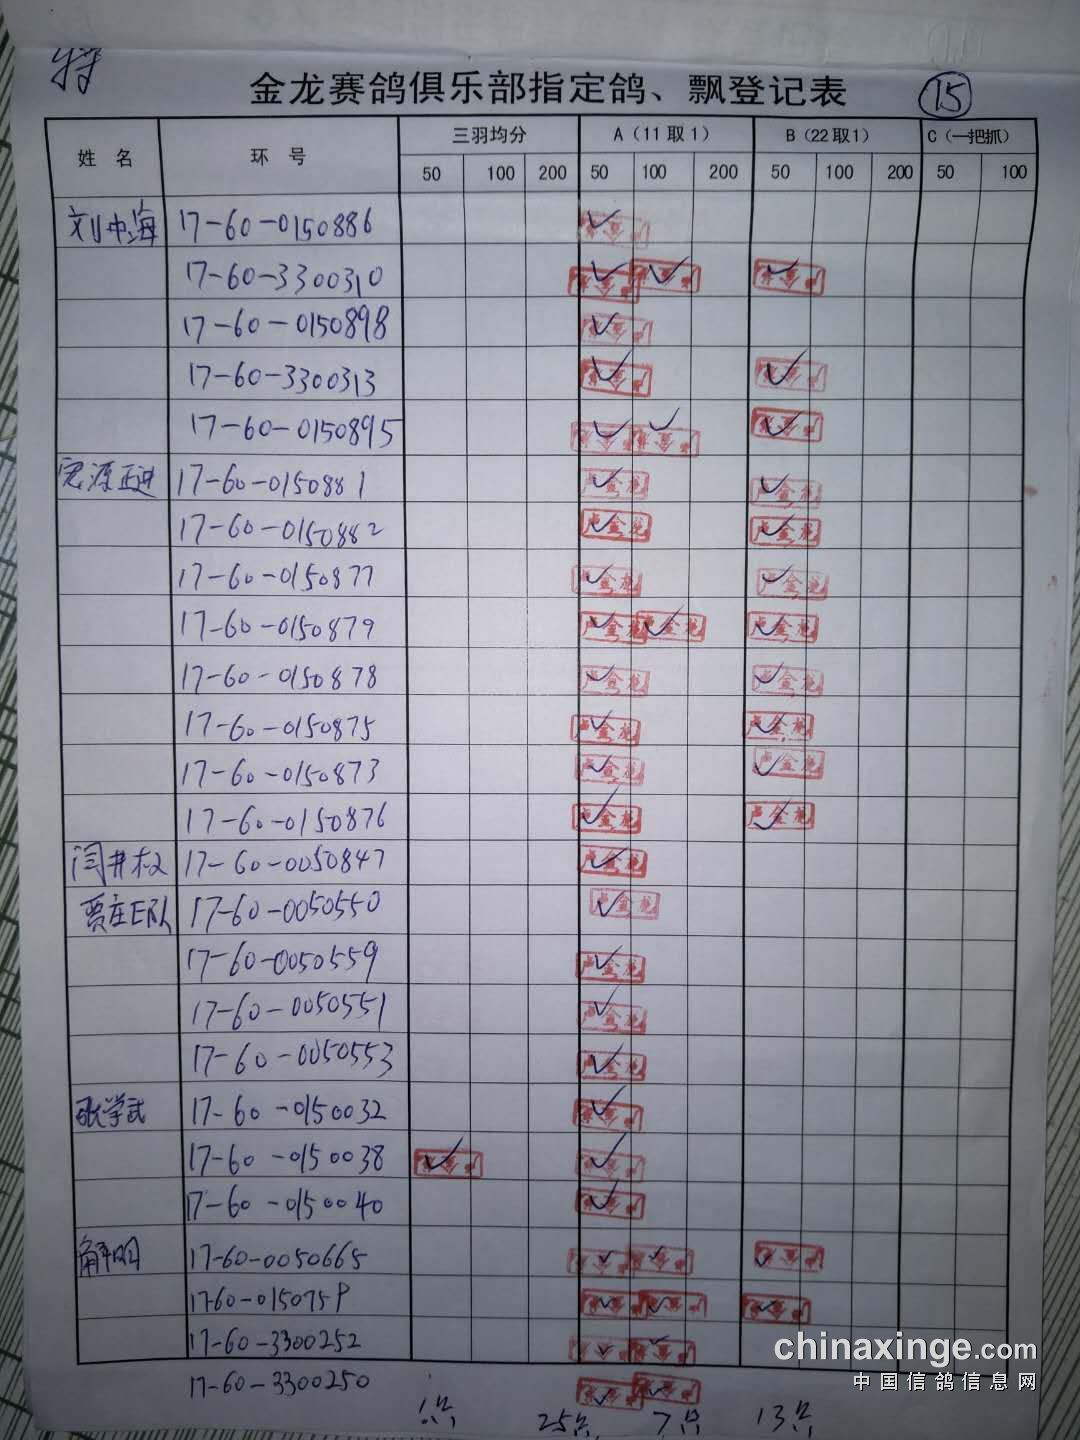 特
金龙赛鸽俱乐部指定鸽、飘登记表 15
姓 名 环 号 三羽均分 A（11取1） B（22取1） C（一把抓）
50 100 200 50 100 200 50 100 200 50 100
刘中海 17-60-0150886 ✓
17-60-3300310 ✓ ✓ ✓
17-60-0150898 ✓
17-60-3300313 ✓ ✓
17-60-0150895 ✓ ✓ ✓
17-60-0150881 ✓ ✓
17-60-0150882 ✓ ✓
17-60-0150877 ✓ ✓
17-60-0150879 ✓ ✓ ✓
17-60-0150878 ✓ ✓
17-60-0150875 ✓ ✓
17-60-0150873 ✓ ✓
17-60-0150876 ✓ ✓
闫井权 17-60-0050847 ✓
贾庄E队 17-60-0050550 ✓
17-60-0050559 ✓
17-60-0050551 ✓
17-60-0050553 ✓
张学武 17-60-0150032 ✓
17-60-0150038 ✓ ✓
17-60-0150040 ✓
解明 17-60-0050665 ✓ ✓ ✓
17-60-015075P ✓ ✓ ✓
17-60-3300252 ✓ ✓
17-60-3300250 ✓ ✓
1只 25只 7只 13只
chinaxinge.com
中国信鸽信息网